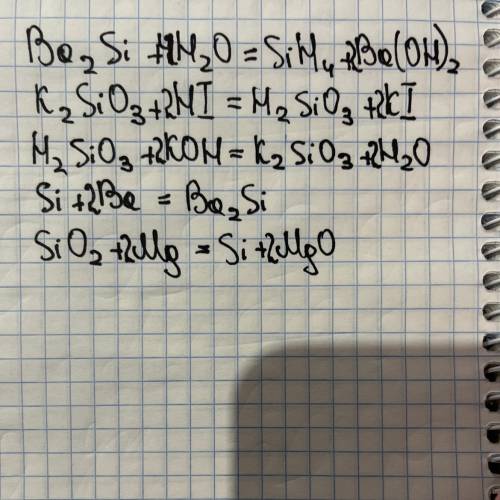 Ba₂Si + 4H₂O = SiH₄ + 2Ba(OH)₂
K₂SiO₃ + 2HI = H₂SiO₃ + 2KI
H₂SiO₃ + 2KOH = K₂SiO₃ + 2H₂O
Si + 2Ba = Ba₂Si
SiO₂ + 2Mg = Si + 2MgO